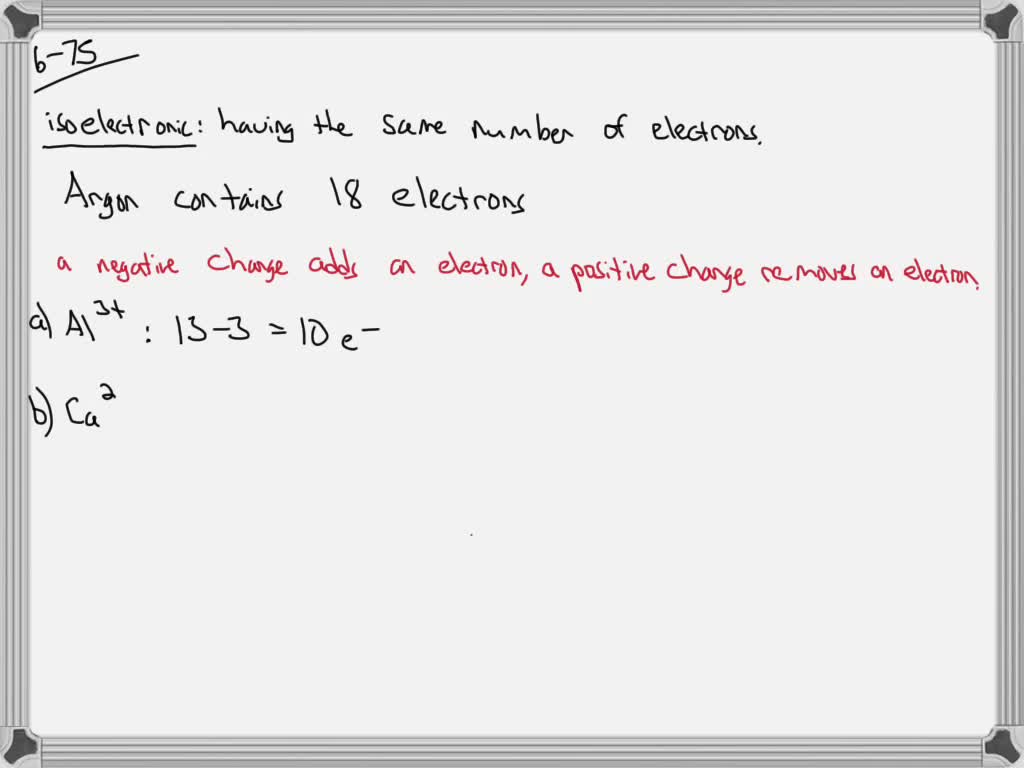 6-75
isoelectronic: having the same number of electrons.
Argon contains 18 electrons
a negative change adds an electron, a positive change removes an electron.
a) Al³⁺ : 13-3 = 10 e⁻
b) Ca²